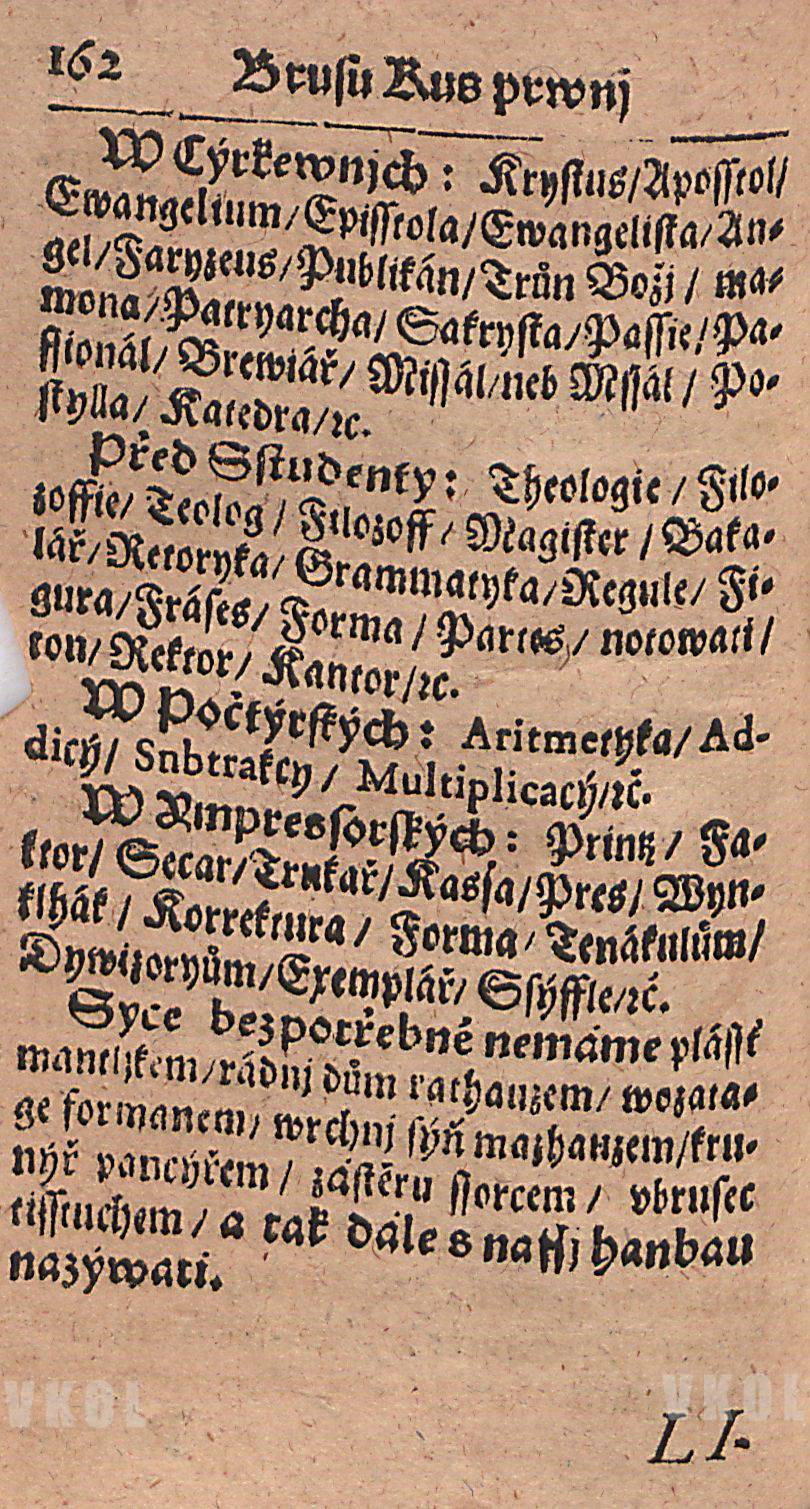 162 Brusu Kus prwnj
W Cýrkewnjch: Krystus/Aposstol/
Ewangelium/Episstola/Ewangelista/An-
gel/Faryzeus/Publikán/Trůn Božj/ ma-
mona/Patryarcha/ Sakrysta/Passie/Pa-
ssionál/ Brewiář/ Missál/neb Mssál/ Po-
stylla/ Katedra/ꝛc.
Před Sstudenty: Theologie/ Filo-
zoffie/ Teolog/ Filozoff/ Magister/ Baka-
lář/Retoryka/ Grammatyka/Regule/ Fi-
gura/Fráses/ Forma/ Partes/ notowati/
ton/Rektor/ Kantor/ꝛc.
W Počtýrských: Aritmetyka/ Ad-
dicý/ Snbtrakcy/ Multiplicacý/ꝛč.
W Ympressorských: Printz/ Fa-
ktor/ Secar/Trukař/Kassa/Pres/ Wyn-
klhák/ Korrektura/ Forma/ Tenákulům/
Dywizoryům/Exemplář/ Ssýffle/ꝛč.
Syce bezpotřebně nemáme plásst
mantljkem/rádnj dům rathauzem/ wozata-
ge formanem/ wrchnj sýň mazhauzem/kru-
nýř pancýřem/ zástěru ssorcem/ vbrusec
tissstuchem/ a tak dále s nassj hanbau
nazýwati.
LI-
VKOL
VKOL